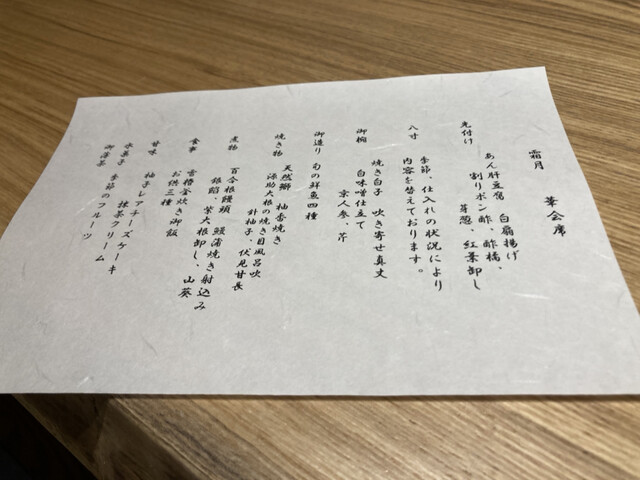 霜月　華会席
先付け
あん肝豆腐　白扇揚げ
割りポン酢、酢橘、
芽葱、紅葉卸し
八寸
季節、仕入れの状況により
内容を替えております。
御椀
焼き白子　吹き寄せ真丈
白味噌仕立て
京人参、芹
御造り　旬の鮮魚四種
焼き物
天然鰤　柚香焼き
源助大根の焼き目風呂吹
針柚子、伏見甘長
煮物
百合根饅頭　鰻蒲焼き射込み
銀餡、紫大根卸し、山葵
食事
雲櫓釜炊き御飯
お供三種
甘味
柚子レアチーズケーキ
水菓子　抹茶クリーム
御薄茶　季節のフルーツ